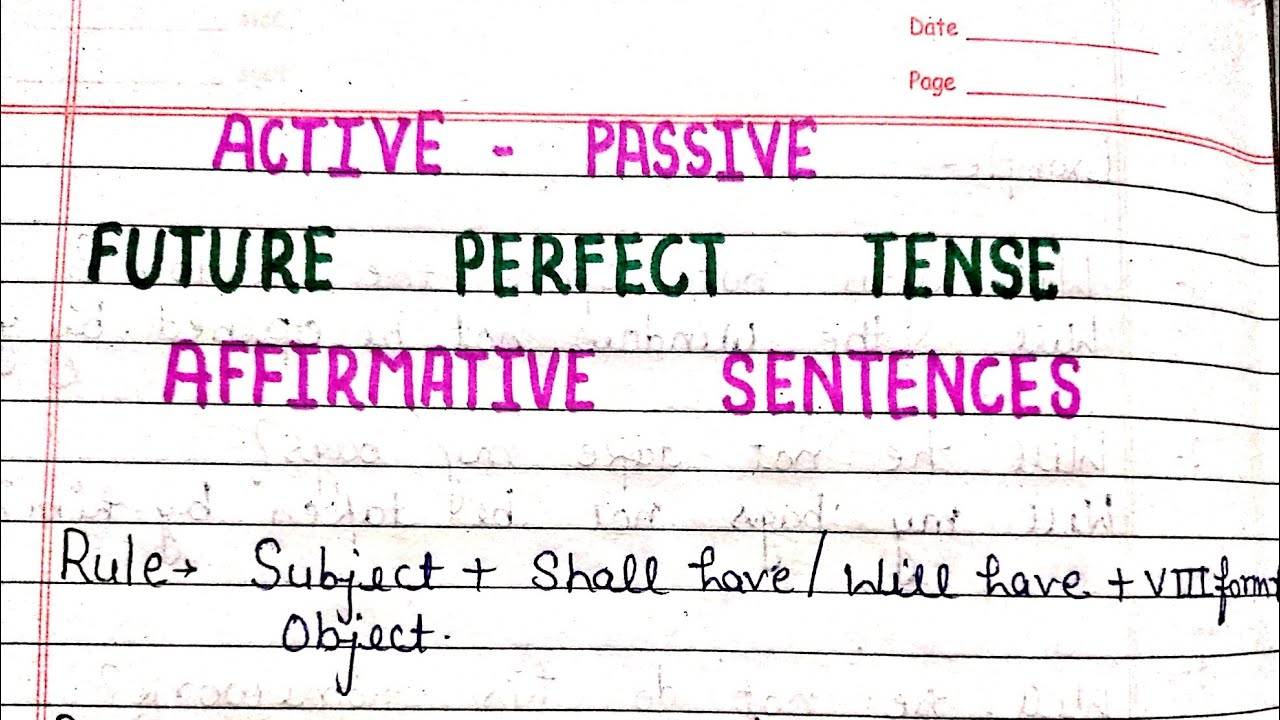 Date
Page
ACTIVE - PASSIVE
FUTURE PERFECT TENSE
AFFIRMATIVE SENTENCES
Rule→ Subject + Shall have / Will have + VIII form +
Object.